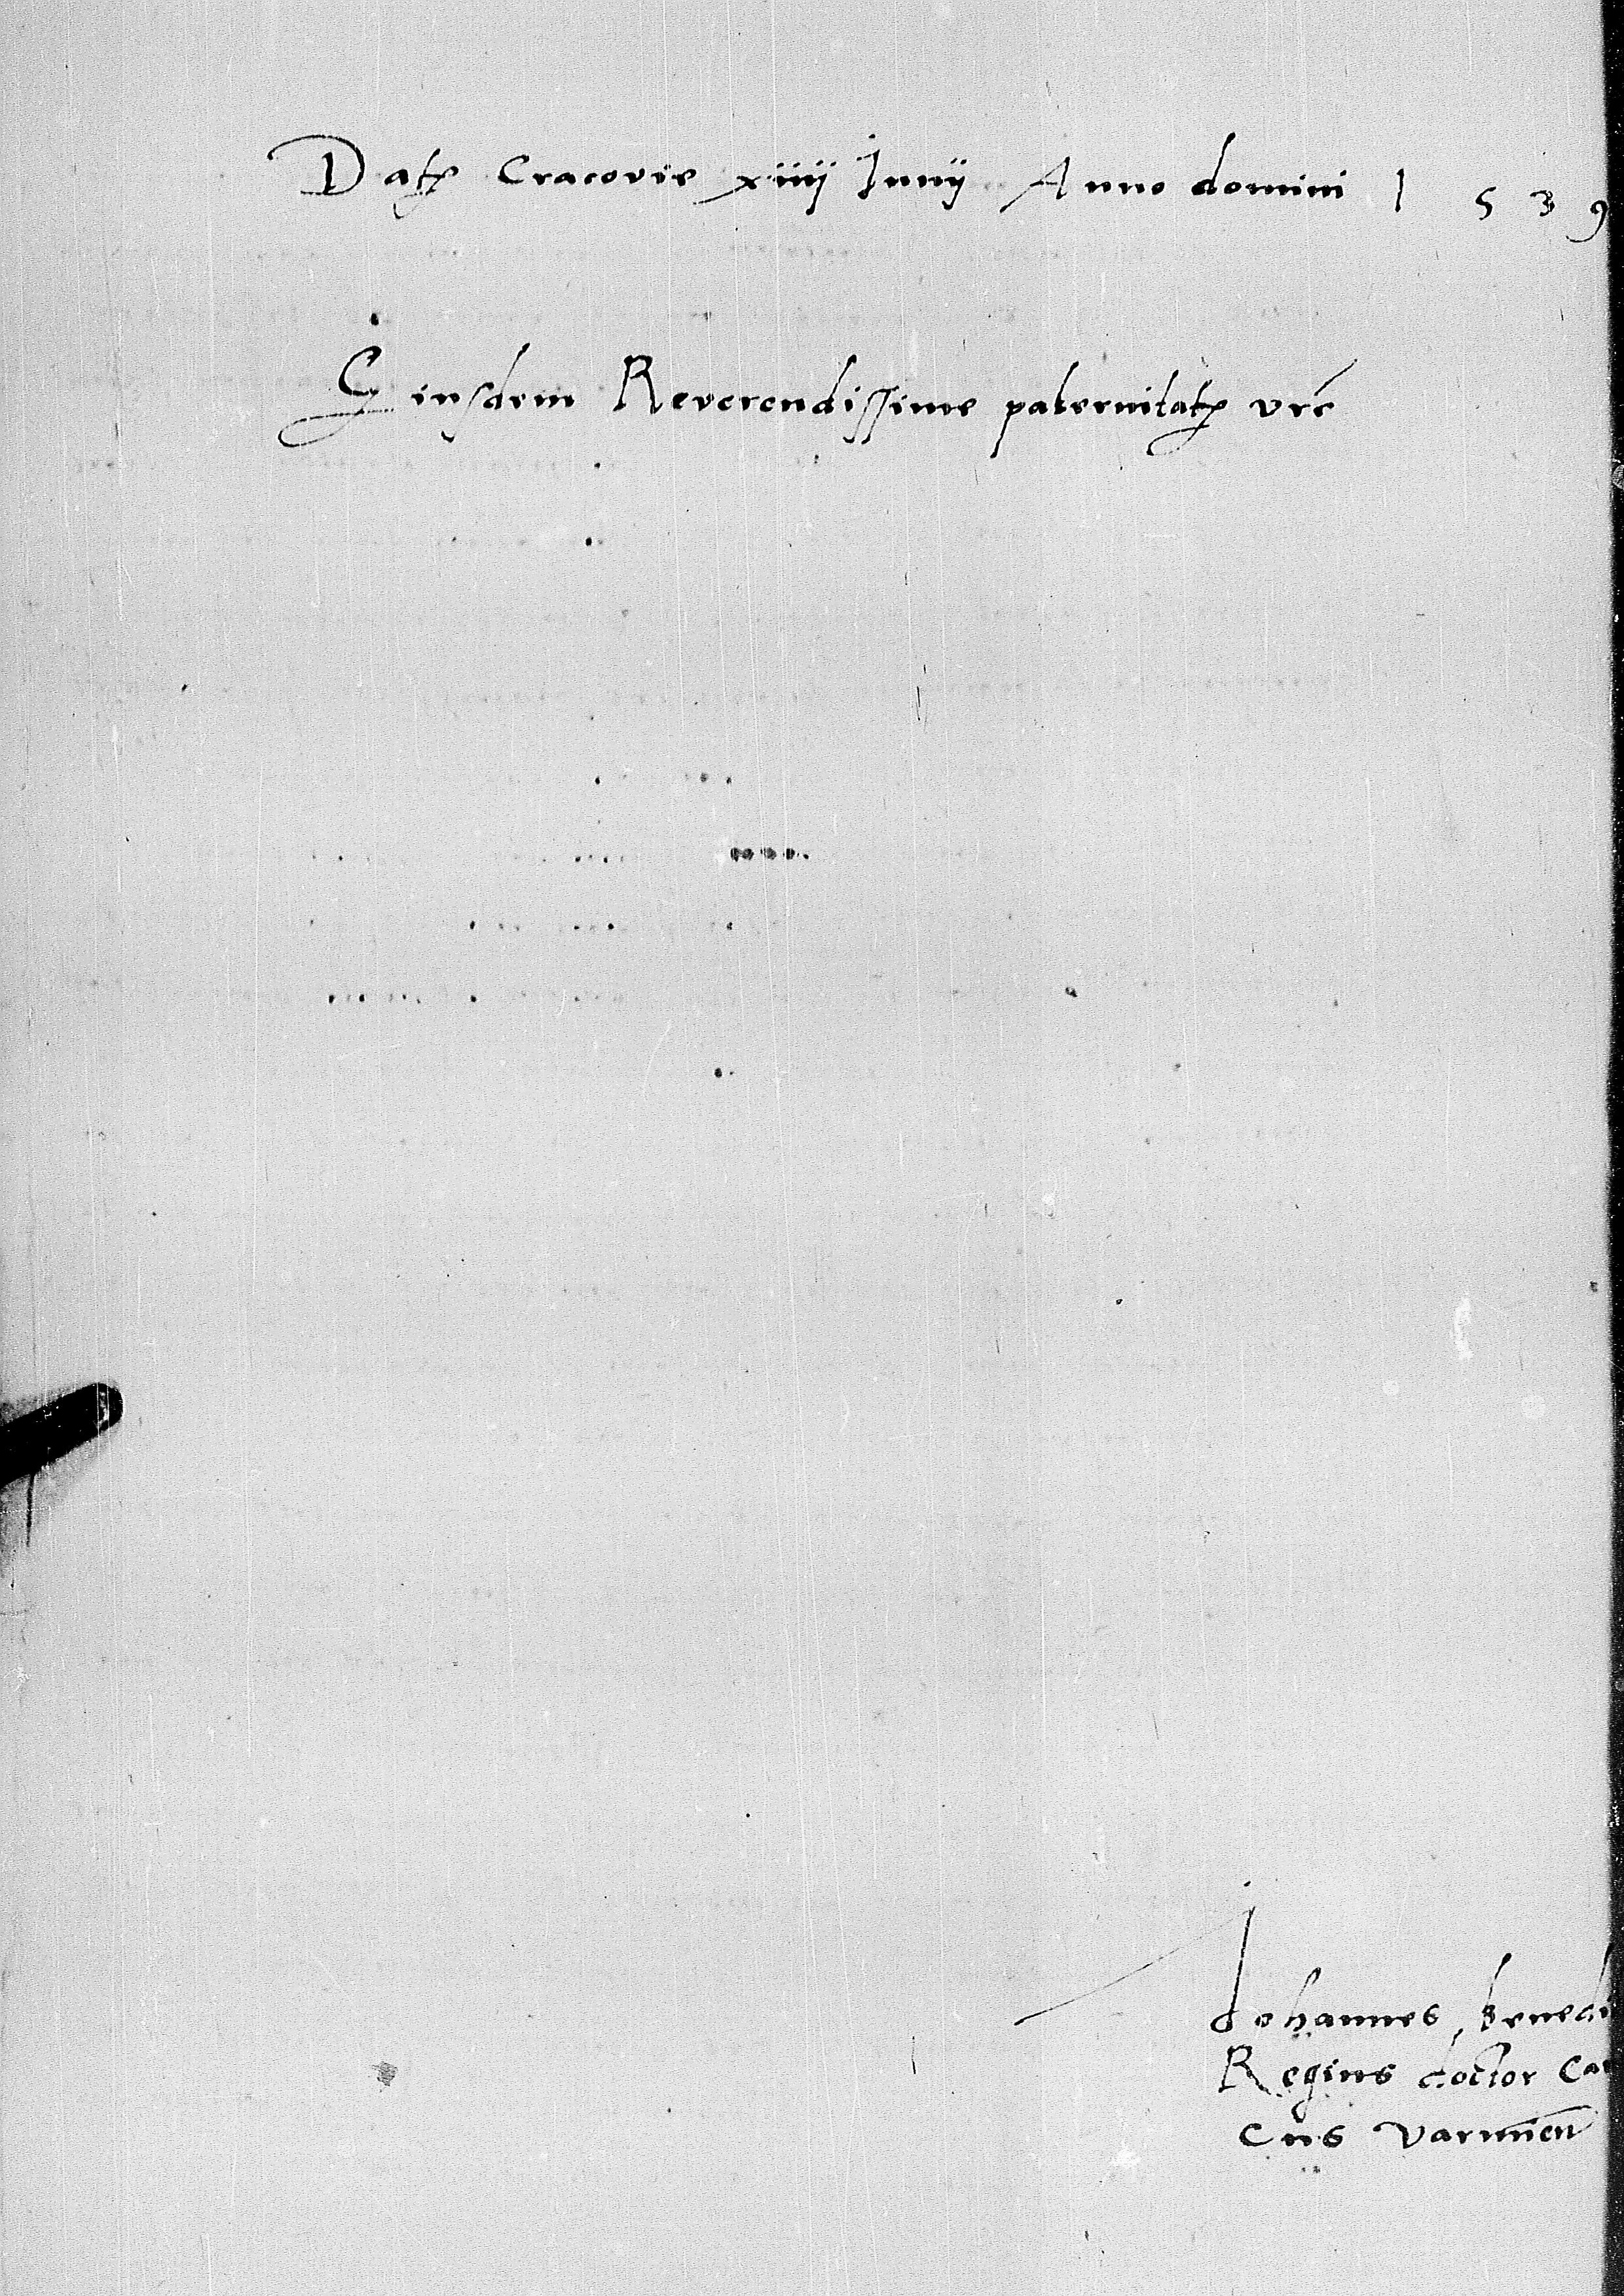 Datꝭ Cracovie xiiij Junij Anno domini 1539
Eiusdem Reverendissime paternitatꝭ vre
Johannes Benedi
Regius doctor Ca
cus Varmien